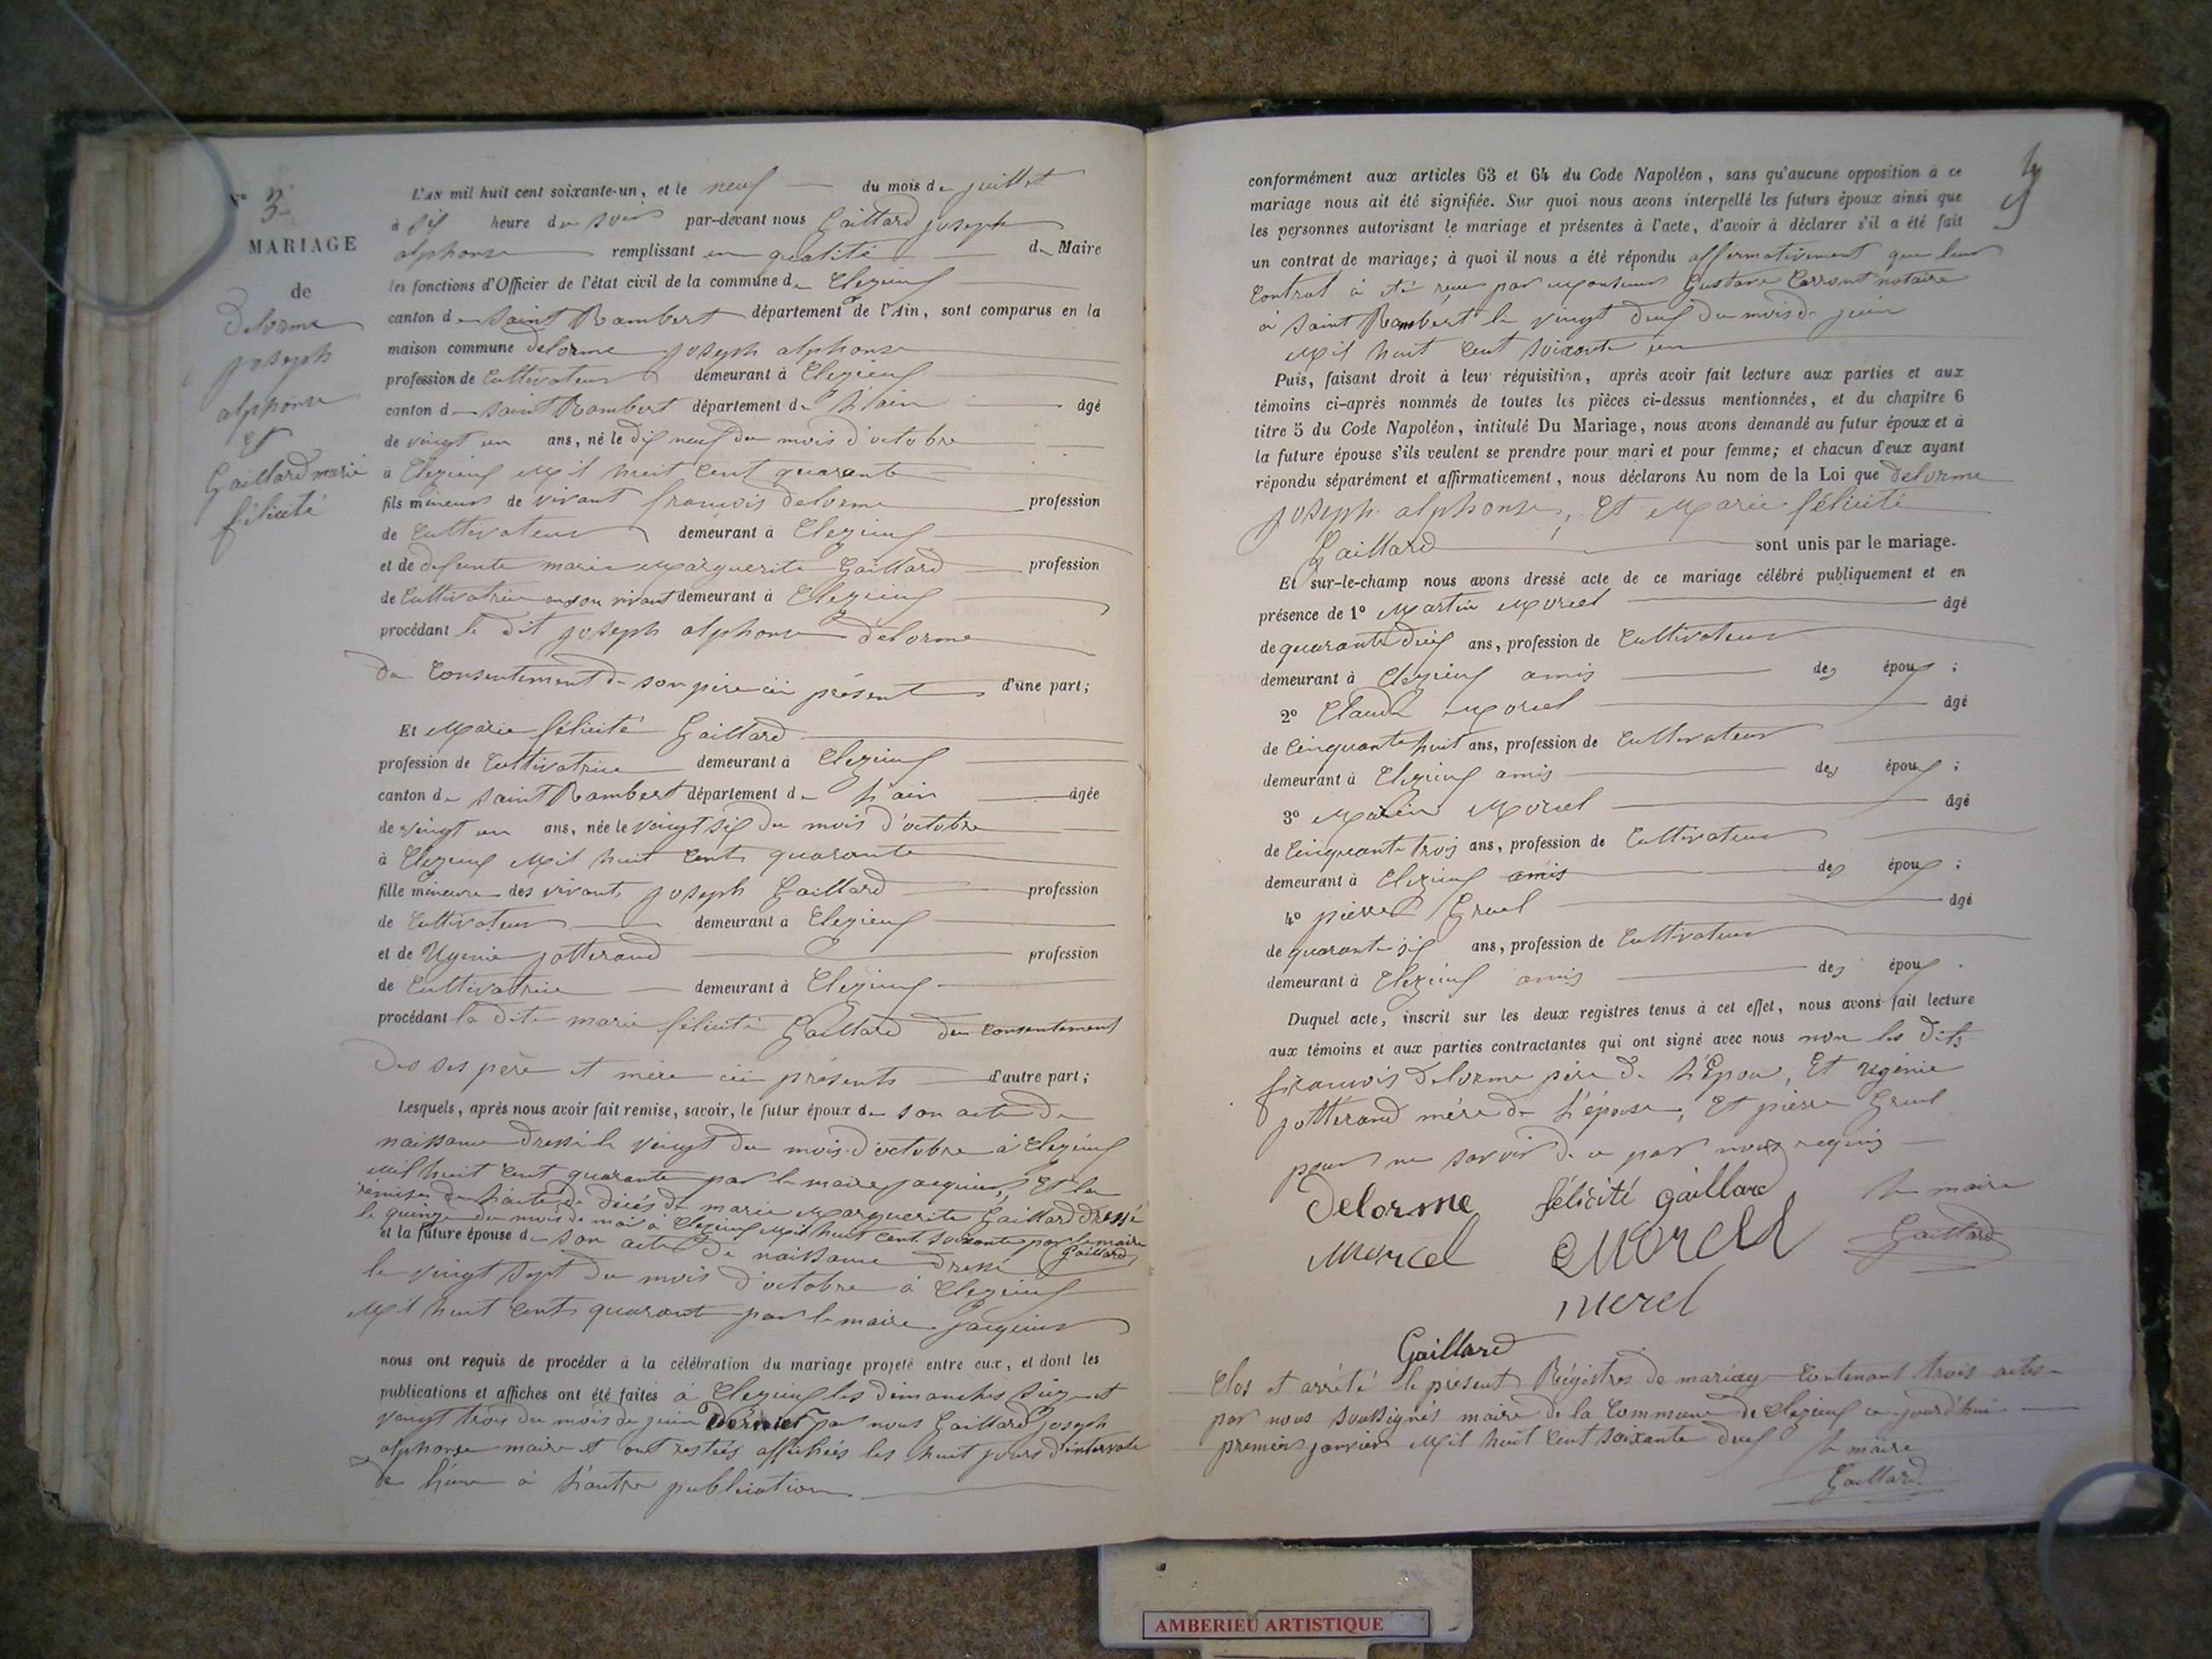 N° 3
MARIAGE
de
Delorme
joseph
alphonse
Et
Gaillard marie
félicité
L'AN mil huit cent soixante-un, et le neuf du mois de juillet
à six heure du soir par-devant nous Gaillard joseph
alphonse remplissant en qualité de Maire
les fonctions d'Officier de l'état civil de la commune de Clezieux
canton de Saint Rambert département de l'Ain, sont comparus en la
maison commune delorme joseph alphonse
profession de Cultivateur demeurant à Clezieux
canton de Saint Rambert département de l'ain âgé
de vingt un ans, né le dix neuf du mois d'octobre
à Clezieux Mil huit Cent quarante
fils mineur de vivant françois delorme profession
de Cultivateur demeurant à Clezieux
et de defunte marie Marguerite Gaillard profession
de Cultivatrice en son vivant demeurant à Clezieux
procédant le dit joseph alphonse delorme
du Consentement de son père ici présent d'une part;
Et Marie félicité Gaillard
profession de Cultivatrice demeurant à Clezieux
canton de Saint Rambert département de l'ain âgée
de vingt un ans, née le vingt six du mois d'octobre
à Clezieux Mil huit Cents quarante
fille mineure des vivants joseph Gaillard profession
de Cultivateur demeurant à Clezieux
et de Ugenie jotterand profession
de Cultivatrice demeurant à Clezieux
procédant la dite marie félicité Gaillard du consentement
des ses père et mère ici présents d'autre part;
Lesquels, après nous avoir fait remise, savoir, le futur époux de son acte de
naissance dressé le vingt du mois d'octobre à Clezieux
Mil huit Cent quarante par le maire jacquier, Et la
remise de l'acte de décés de marie Marguerite Gaillard dressé
le quinze du mois de mai à Clezieux Mil huit cent soixante par le maire
Gaillard
et la future épouse de son acte de naissance dressé
le vingt sept du mois d'octobre à Clezieux
Mil huit Cents quarante par le maire jacquier
nous ont requis de procéder à la célébration du mariage projeté entre eux, et dont les
publications et affiches ont été faites à Clezieux les dimanches seize et
vingt trois du mois de juin dernier par nous Gaillard joseph
alphonse maire et ont restées affichées les huit jours d'intervale
de l'une à l'autre publication
conformément aux articles 63 et 64 du Code Napoléon, sans qu'aucune opposition à ce
mariage nous ait été signifiée. Sur quoi nous avons interpellé les futurs époux ainsi que
les personnes autorisant le mariage et présentes à l'acte, d'avoir à déclarer s'il a été fait
un contrat de mariage; à quoi il nous a été répondu affirmativement que leur
Contrat à été reçu par Monsieur Gustave notaire
à Saint Rambert le vingt deux du mois de juin
Mil huit Cent soixante un
Puis, faisant droit à leur réquisition, après avoir fait lecture aux parties et aux
témoins ci-après nommés de toutes les pièces ci-dessus mentionnées, et du chapitre 6
titre 5 du Code Napoléon, intitulé Du Mariage, nous avons demandé au futur époux et à
la future épouse s'ils veulent se prendre pour mari et pour femme; et chacun d'eux ayant
répondu séparément et affirmativement, nous déclarons Au nom de la Loi que delorme
joseph alphonse, Et Marie félicité
Gaillard sont unis par le mariage.
Et sur-le-champ nous avons dressé acte de ce mariage célébré publiquement et en
présence de 1° Martin Morel âgé
de quarante deux ans, profession de Cultivateur
demeurant à Clezieux amis des époux ;
2° Claude Morel âgé
de Cinquante huit ans, profession de Cultivateur
demeurant à Clezieux amis des époux ;
3° Morel âgé
de Cinquante trois ans, profession de Cultivateur
demeurant à Clezieux amis des époux ;
4° pierre Gruel âgé
de quarante six ans, profession de Cultivateur
demeurant à Clezieux amis des époux .
Duquel acte, inscrit sur les deux registres tenus à cet effet, nous avons fait lecture
aux témoins et aux parties contractantes qui ont signé avec nous non les dits
françois delorme père de l'Epoux, Et ugénie
jotterand mère de l'épouse, Et pierre Gruel
pour ne savoir de ce par nous requis
Delorme félicité gaillard le maire
Morel Morel Gaillard
Morel
Gaillard
Clos et arrêté le present Régistres de mariage Contenant trois actes
par nous soussignés maire de la Commune de Clezieux ce jourd'hui
premier janvier Mil huit Cent soixante deux le maire
Gaillard
AMBERIEU ARTISTIQUE